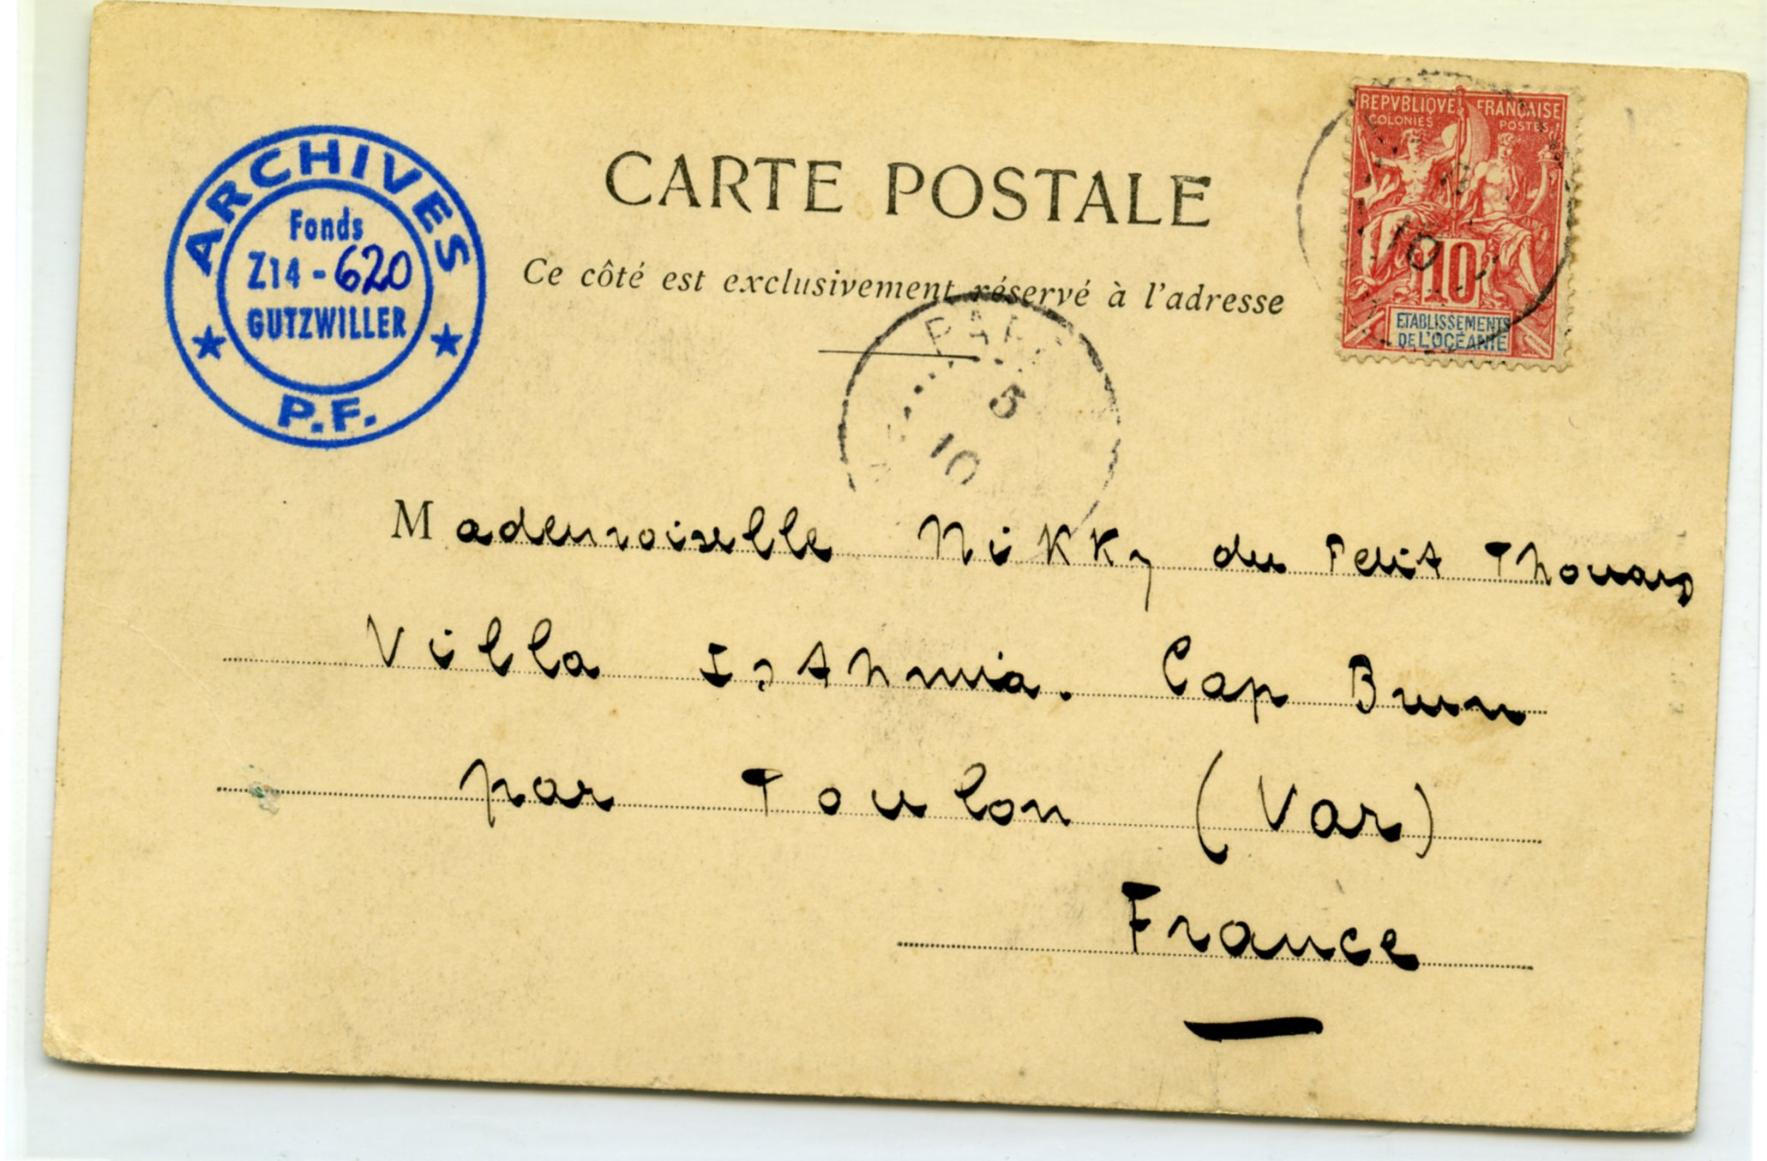 ARCHIVES
Fonds
Z14 - 620
GUTZWILLER
P.F.
CARTE POSTALE
Ce côté est exclusivement réservé à l'adresse
REPVBLIQVE FRANÇAISE
COLONIES POSTES
10
10
ETABLISSEMENTS
DE L'OCÉANIE
5
10
Mademoiselle Nikky du Petit Thouars
Villa Isthmia. Cap Brun
par Toulon (Var)
France